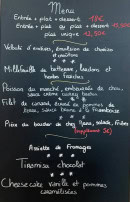 Menu
Entrée + plat + dessert 18€
Entrée + plat ou plat + dessert 15,50€
plat unique 12,50€
Velouté d'endives, émulsion de chorizo
et croûtons
Millefeuille de betterave, lardons et
herbes fraîches
Poisson du marché, embeurrée de chou,
sauce crème curry
Filet de canard, écrasé de pommes de
terre, sauce
Pièce du boucher de chez Mané, salade, frites
(supplément 5€)
Assiette de Fromages
Tiramisu chocolat
Cheesecake vanille et pommes
caramélisées